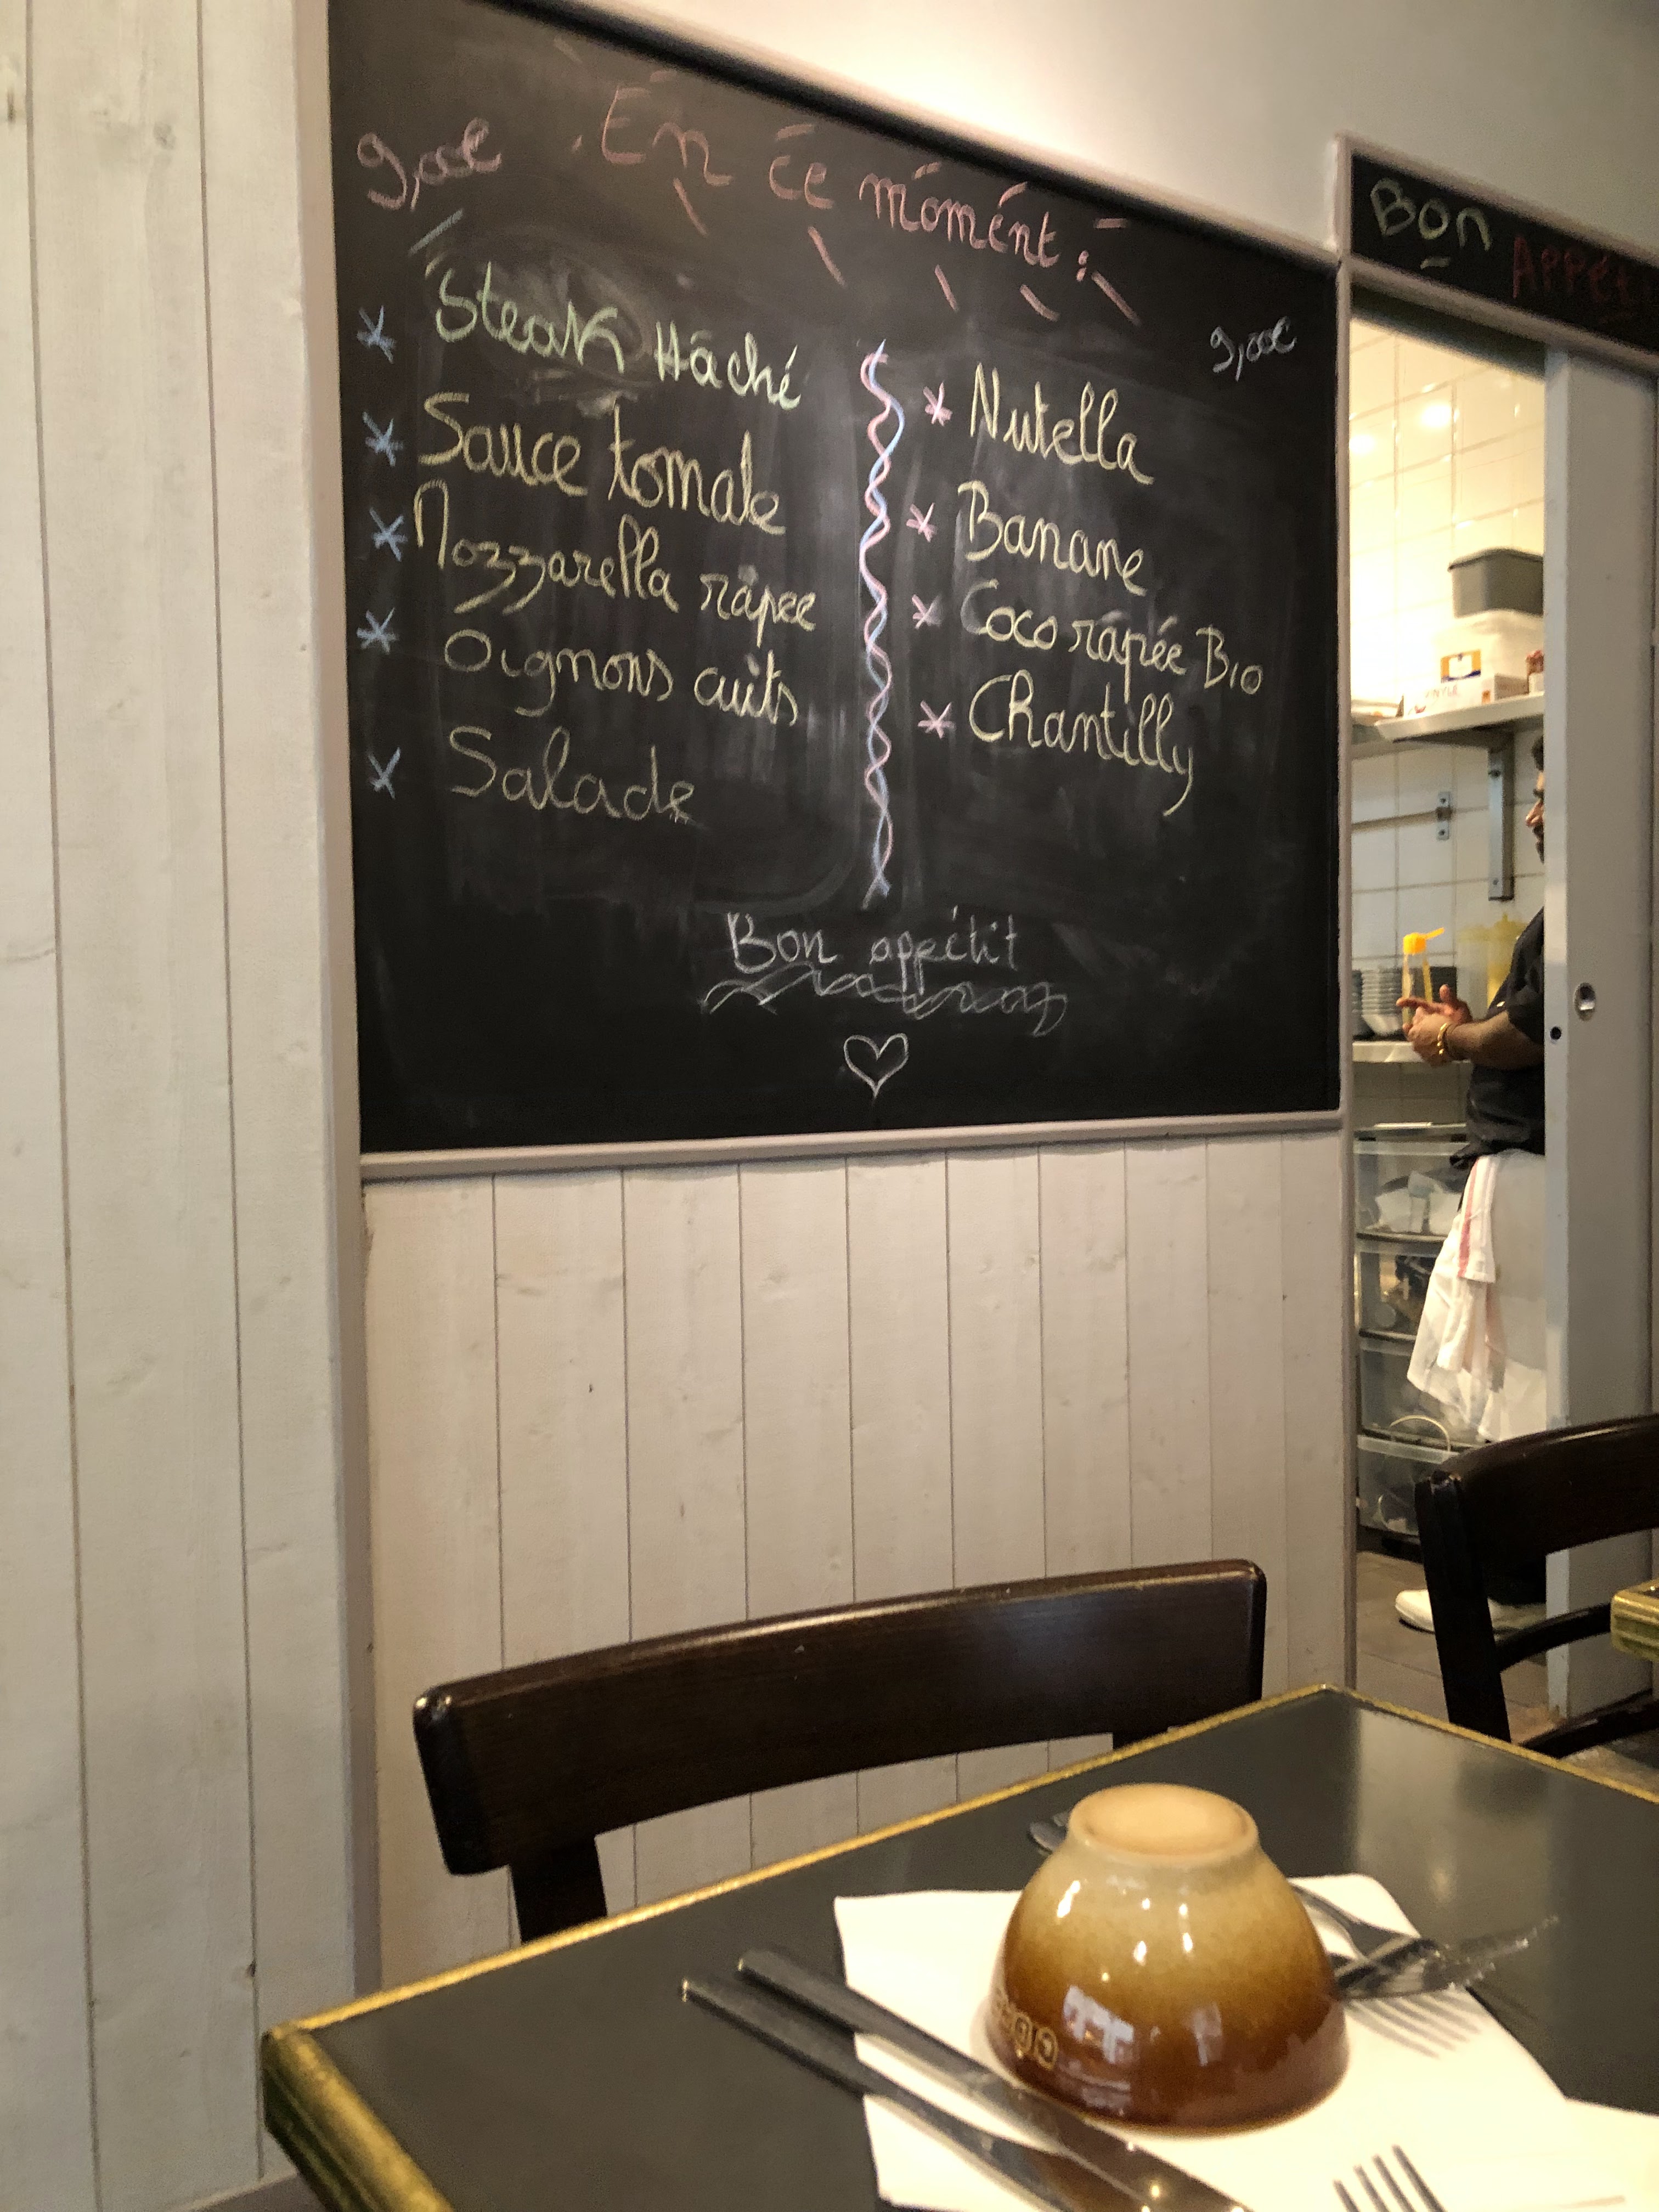 9,00€
En ce moment :
Steak Hâché
Sauce tomate
Mozzarella râpee
Oignons cuits
Salade
9,00€
Nutella
Banane
Coco râpée Bio
Chantilly
Bon appétit
Bon
Appét